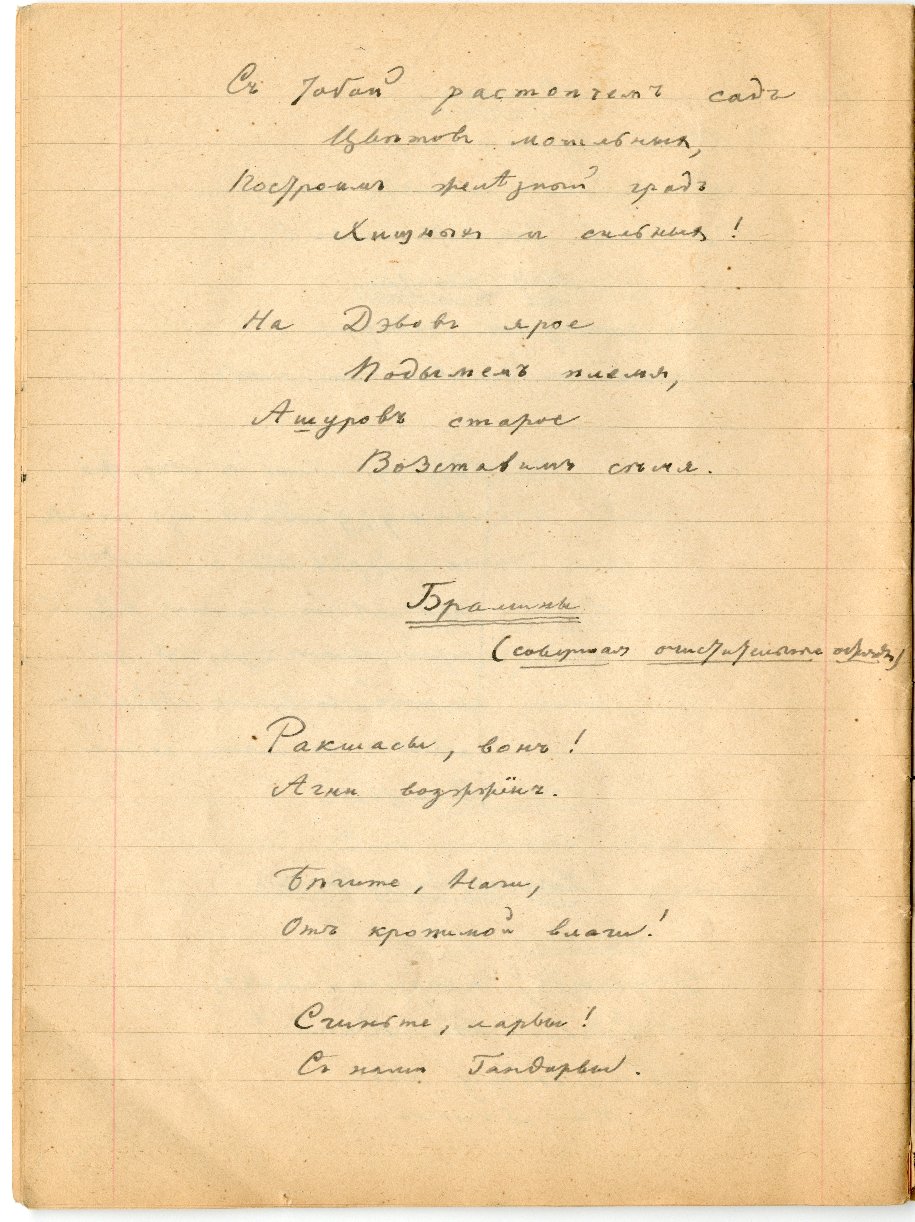 Съ тобой растопчемъ садъ
Цвѣтовъ мотыльныхъ,
Построимъ желѣзный градъ
Хищныхъ и сильныхъ!
На Дэвовъ ярое
Подымемъ племя,
Ашуровъ старое
Возставимъ сѣмя.
Брамины
(совершая очистительные обряды)
Ракшасы, вонъ!
Агни возжжёнъ.
Бѣгите, Наги,
Отъ кропимой влаги!
Сгиньте, ларвы!
Съ нами Гандарвы.